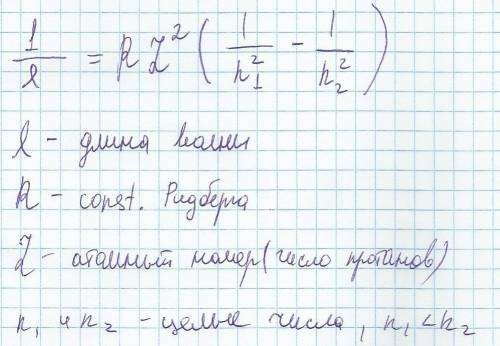 1/l = R Z² ( 1/n₁² - 1/n₂² )
l - длина волны
R - const. Ридберга
Z - атомный номер (число протонов)
n₁ и n₂ - целые числа, n₁ < n₂